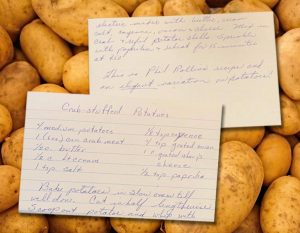 electric mixer with butter, cream,
salt, cayenne, onion & cheese. Add in
crab & refill potato shells. Sprinkle
with paprika & reheat for 15 minutes
at 450°
This is Phil Rollins' recipe and
an elegant variation w/potatoes!
Crab-stuffed Potatoes
4 medium potatoes
1 (can) crab meat
½ c. butter
½ c. cream
1 tsp. salt
⅛ tsp. cayenne
4 tsp. grated onion
1 c. grated sharp
cheese
½ tsp. paprika
Bake potatoes in slow oven till
well done. Cut in half lengthwise
Scoop out potato and whip with